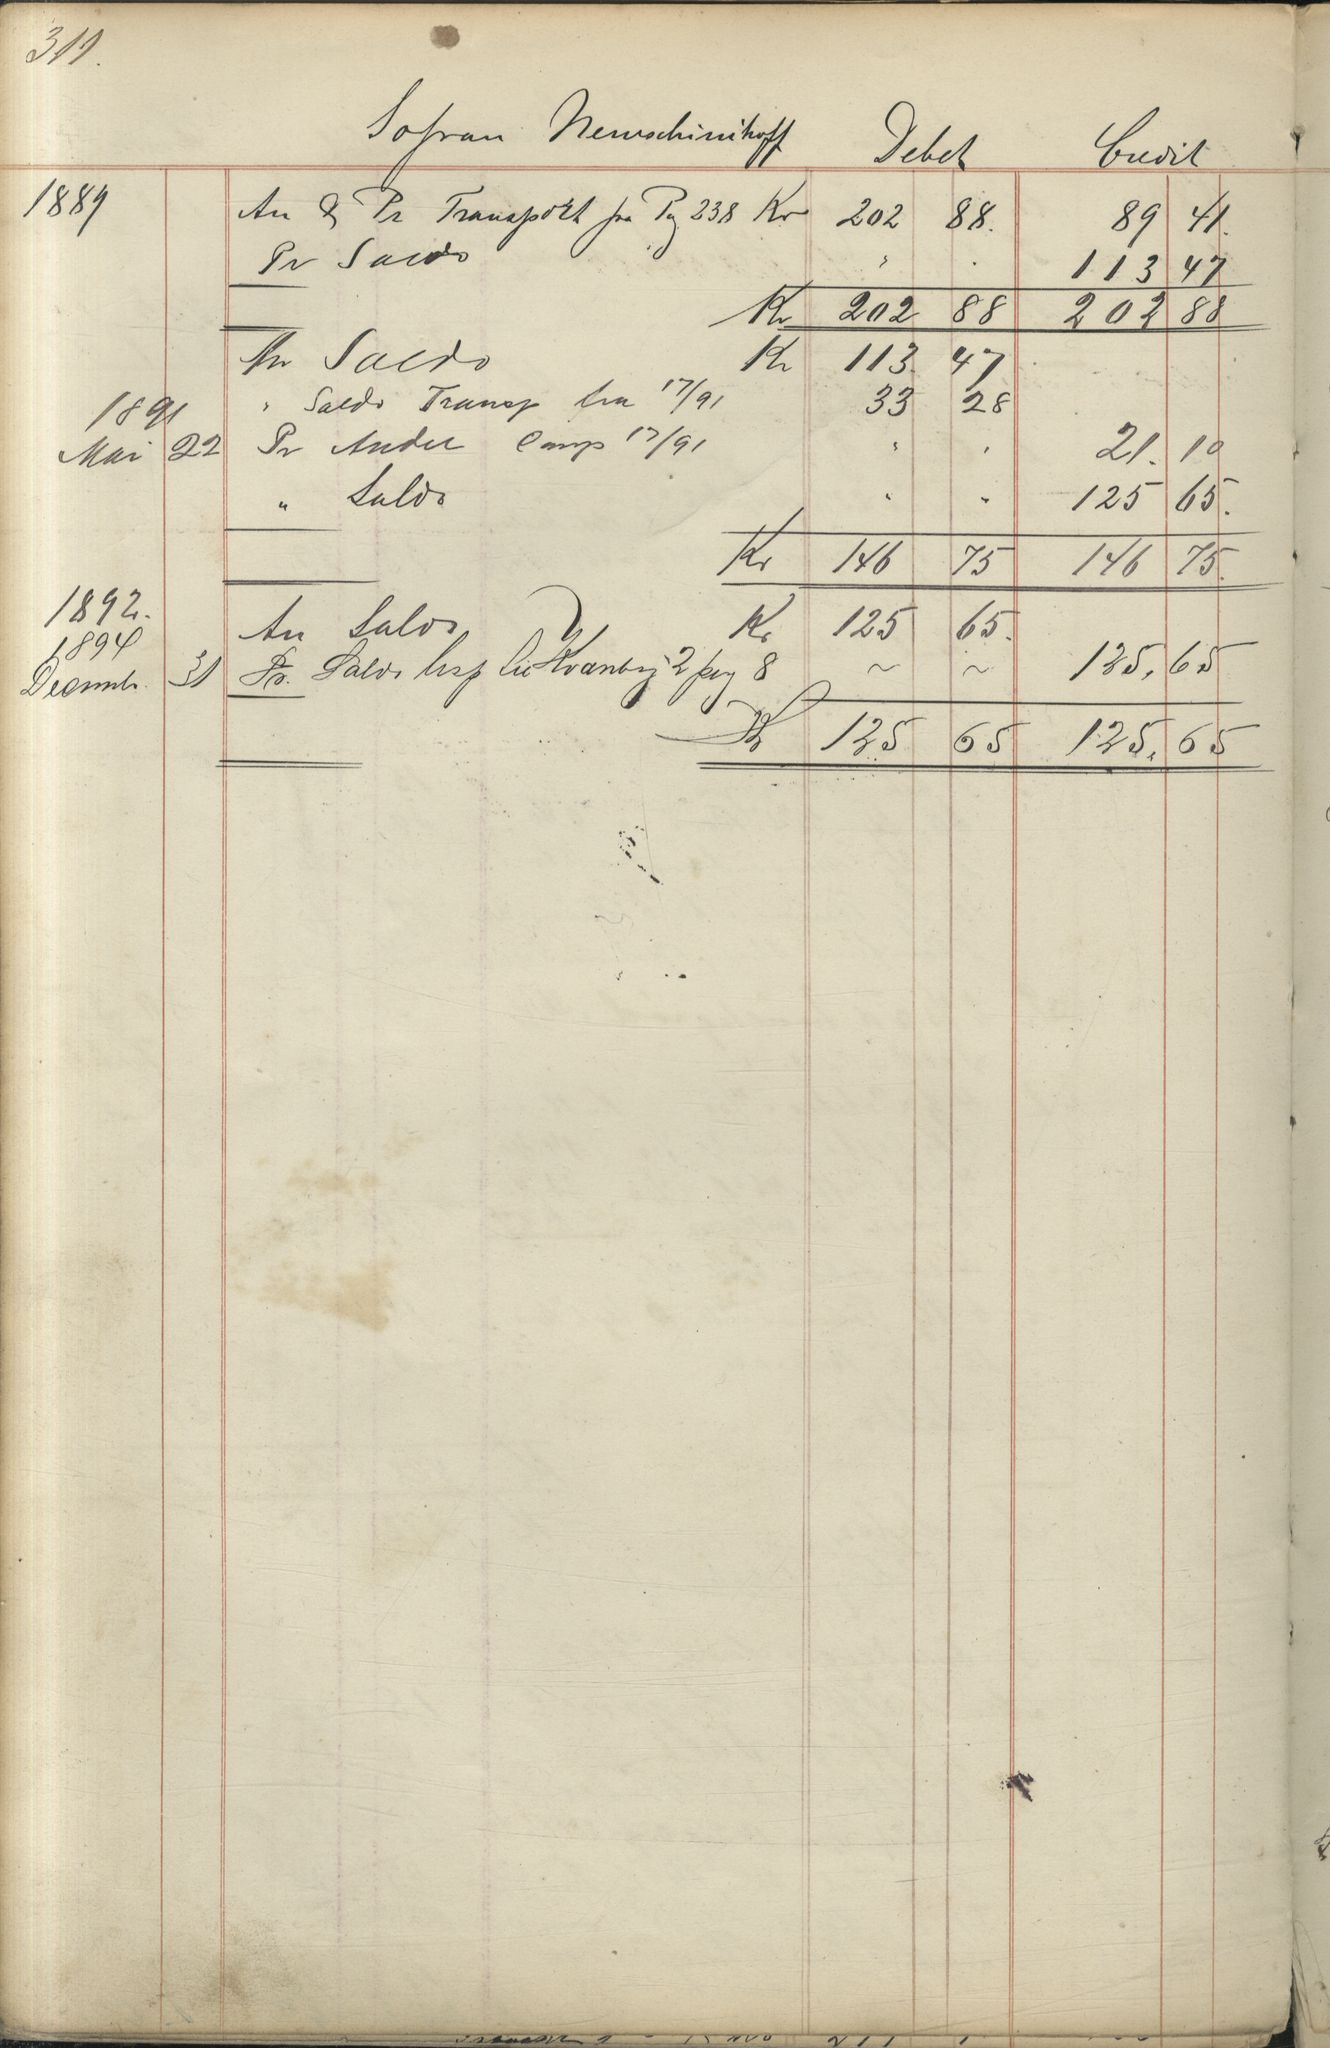 311.
Sofran Nemschinihoff Debet Credit
1889 An & Pr Transport fra Pg 238 Kr 202 88. 89 41.
Pr Saldo " . 113 47
Kr 202 88 202 88
An Saldo Kr 113 47
1891 " Saldo Transp fra 17/91 33 28
Mai 22 Pr Andel Comp 17/91 " " 21. 10
" Saldo " " 125 65.
Kr 146 75 146 75.
1892. An Saldo Kr 125 65.
1894
Decembr. 31 Pr. Saldo Kvænby 2 pag 8 ~ ~ 125. 65
Kr 125 65 125. 65